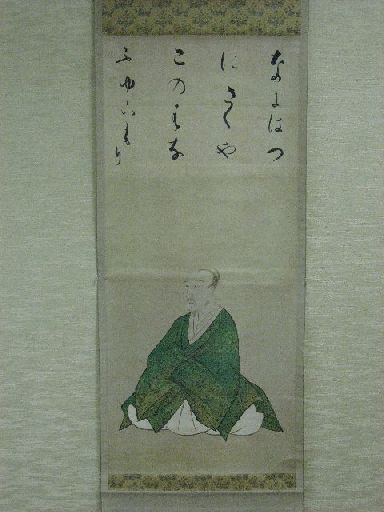 なにはつ
にさくや
このはな
ふゆこもり